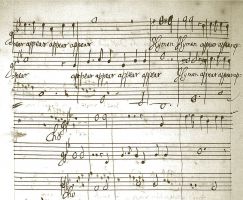 appear appear appear appear Hymen Hymen appear appear
appear appear appear appear Hymen appear appear
Cho
Cho